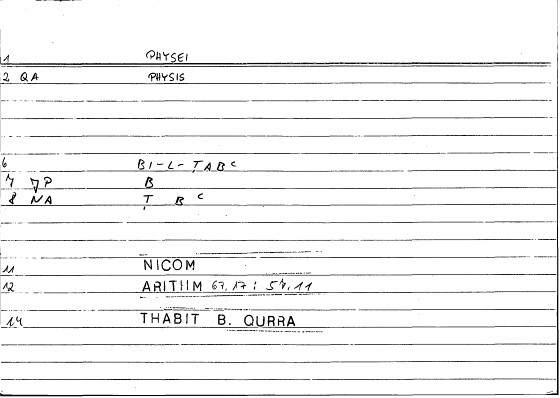 1 PHYSEI
2 QA PHYSIS
6 BI-L-ṬABC
7 JP B
8 NA Ṭ B C
11 NICOM
12 ARITIIM 67,17 : 54,11
14 THABIT B. QURRA